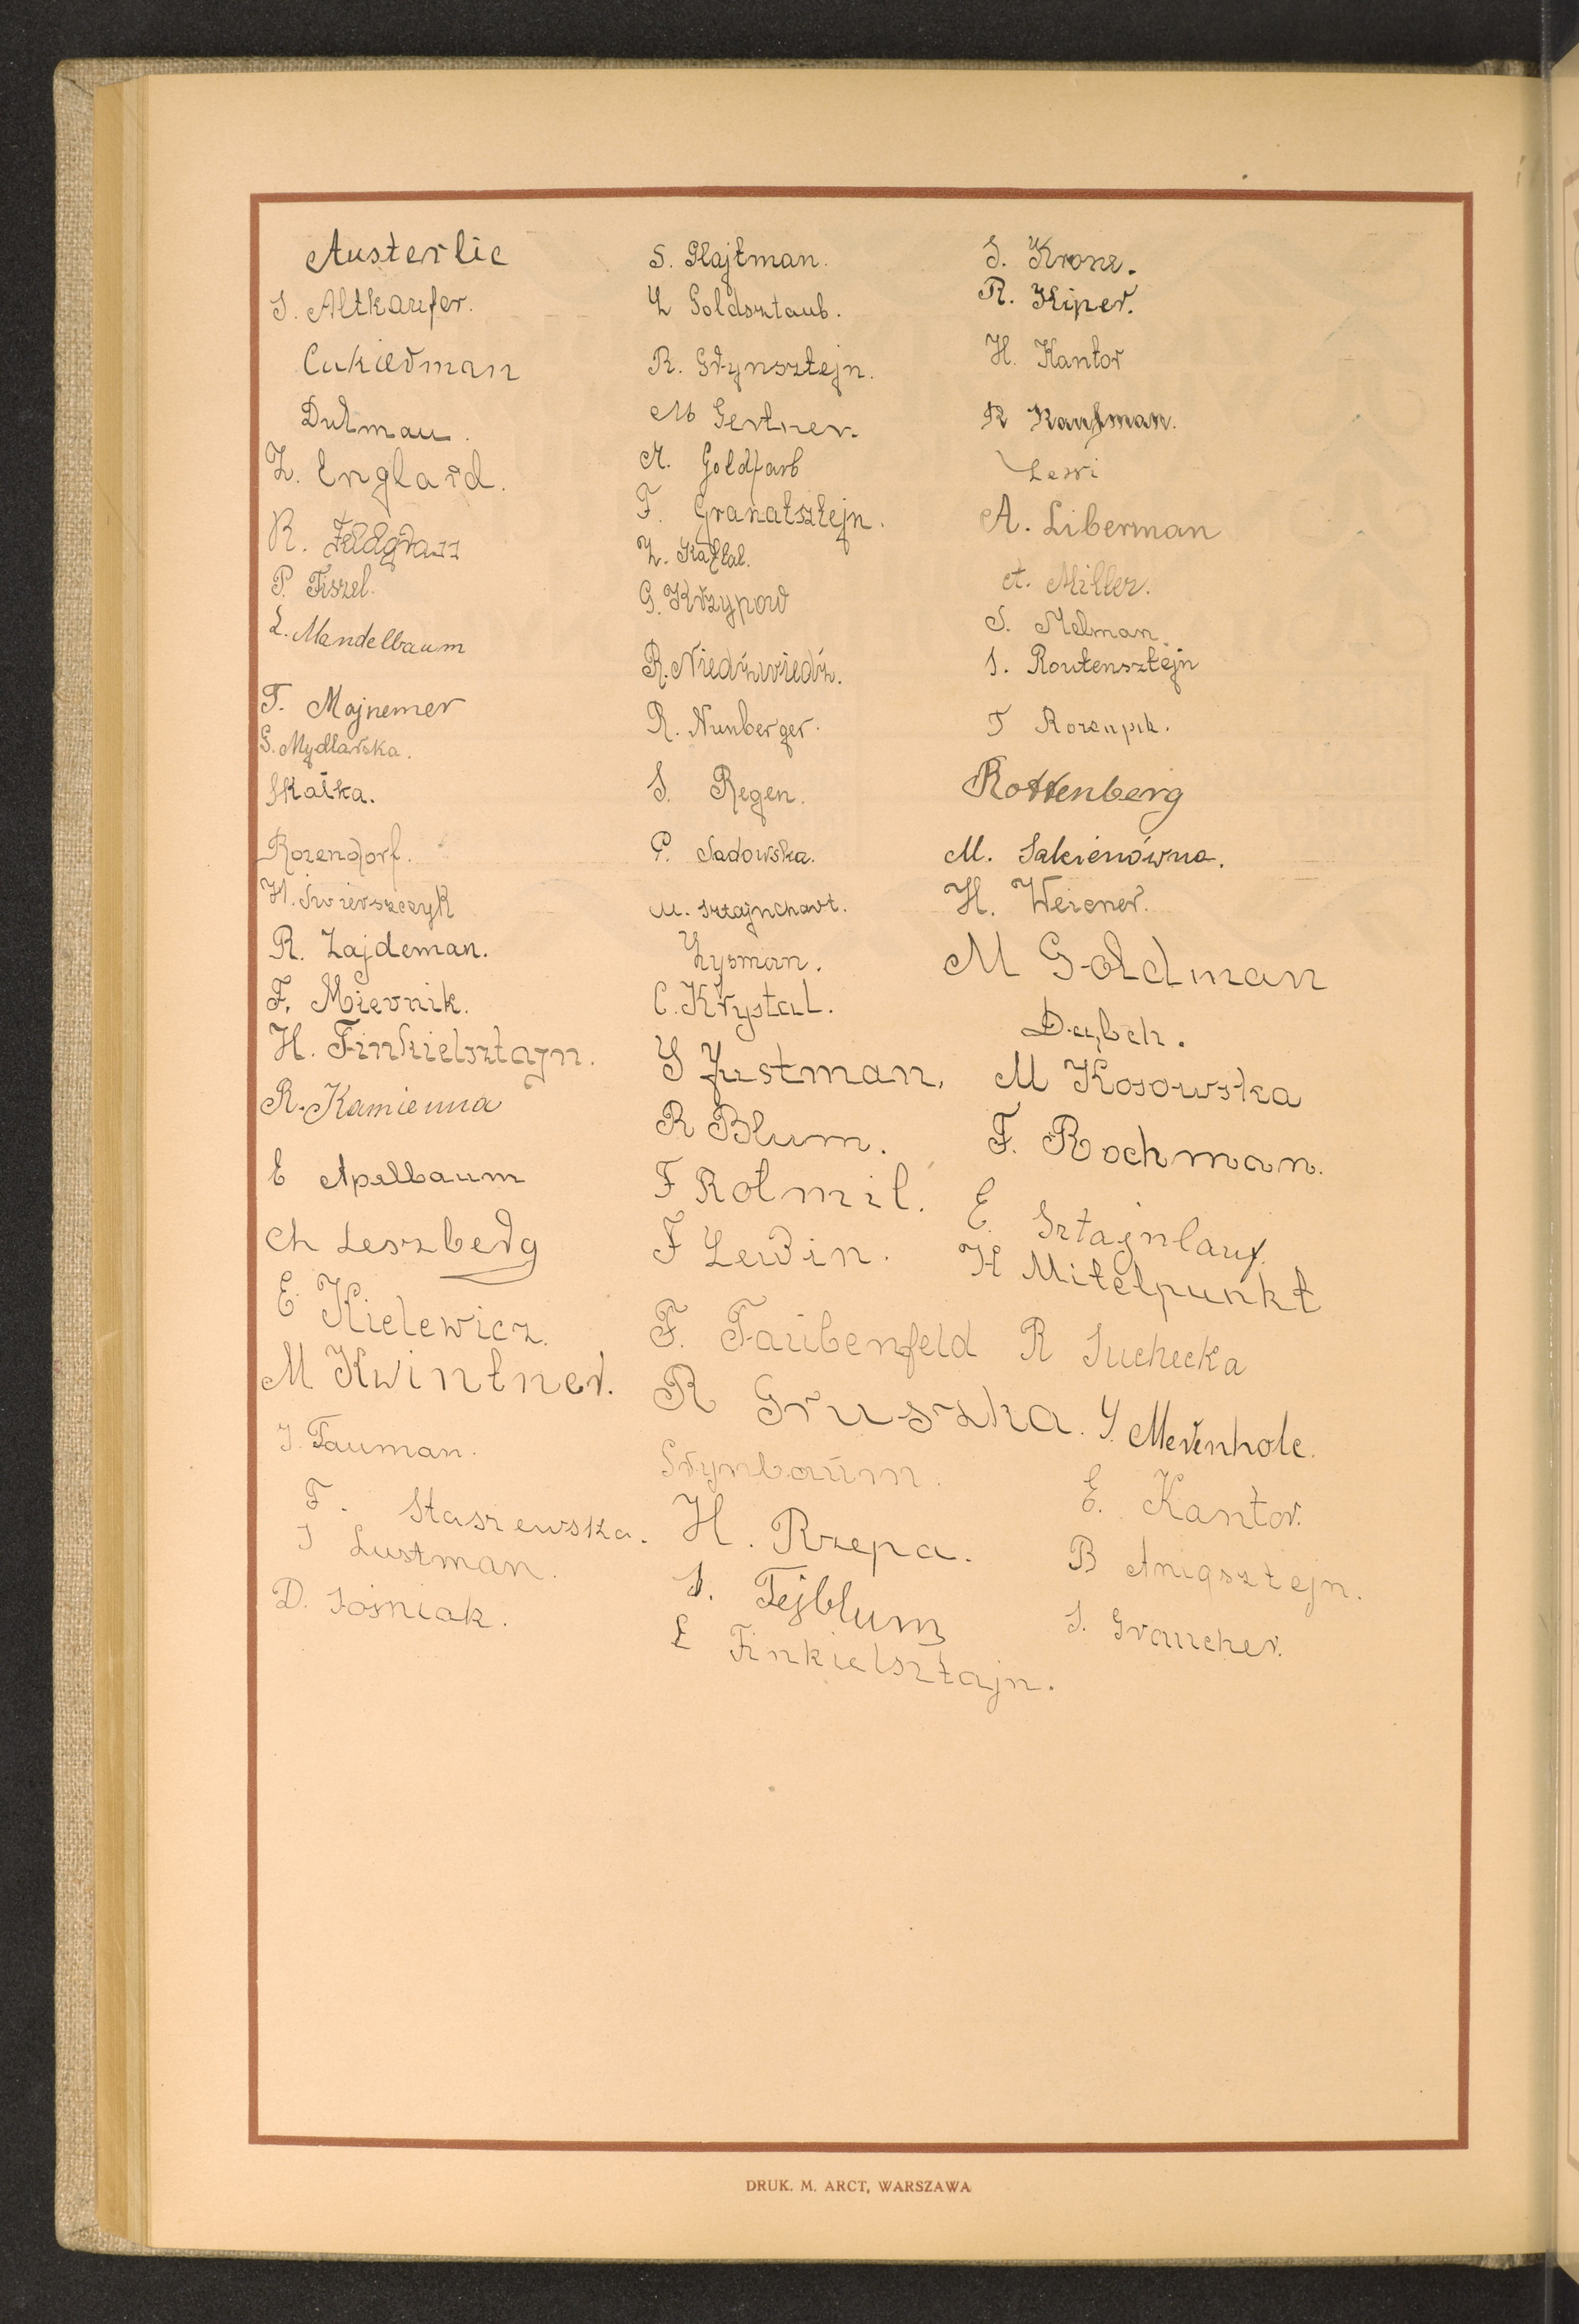 Austerlic
I. Altkaufer.
Cukierman
Dutman.
Z. Englard.
R. Feldgrass
P. Fiszel.
L. Mandelbaum
T. Majnemer
S. Mydlarska.
Skałka.
Rozendorf.
H. Świerszczyk
R. Zajdeman.
F. Miernik.
H. Finkielsztajn.
R. Kamienna
E Apelbaum
Ch Leszberg
E. Kielewicz.
M Kwintner.
I. Tauman.
F. Staszewska.
I Lustman.
D. Sośniak.
S. Glajtman.
L Goldsztaub.
R. Grynsztejn.
M Gertner.
A. Goldfarb
F. Granatsztejn.
G. Krzypow
R. Niedźwiedź.
R. Nunberger.
S. Regen.
P. Sadowska.
M. Sztajnchart.
Zysman.
C. Krystal.
S Justman.
R Blum.
F Rotmil.
F Lewin.
F. Taubenfeld
R Gruszka.
Grynbaum.
H. Rzepa.
I. Tejblum
E Finkielsztajn.
S. Krone.
R. Kiper.
H. Kantor
R Kaufman.
Lewi
A. Liberman
A. Miller.
S. Melman.
I. Routensztejn
T
Rottenberg
M. Sakienówna.
H. Weicner.
M Goldman
M Kosowska
F. Rochman.
E. Sztajnlauf.
H Mitelpunkt
R Suchecka
Y. Merenholc.
E. Kantor.
B Anigsztejn.
I. Graucher.
DRUK. M. ARCT, WARSZAWA